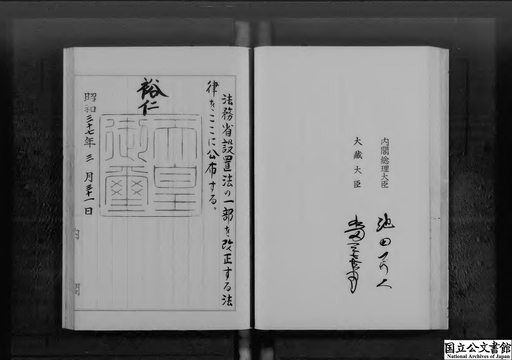 内閣総理大臣
池田
大蔵大臣
法務省設置法の一部を改正する法
律をここに公布する。
裕仁
天皇
御璽
昭和三十七年三月三十一日
内閣
国立公文書館
National Archives of Japan